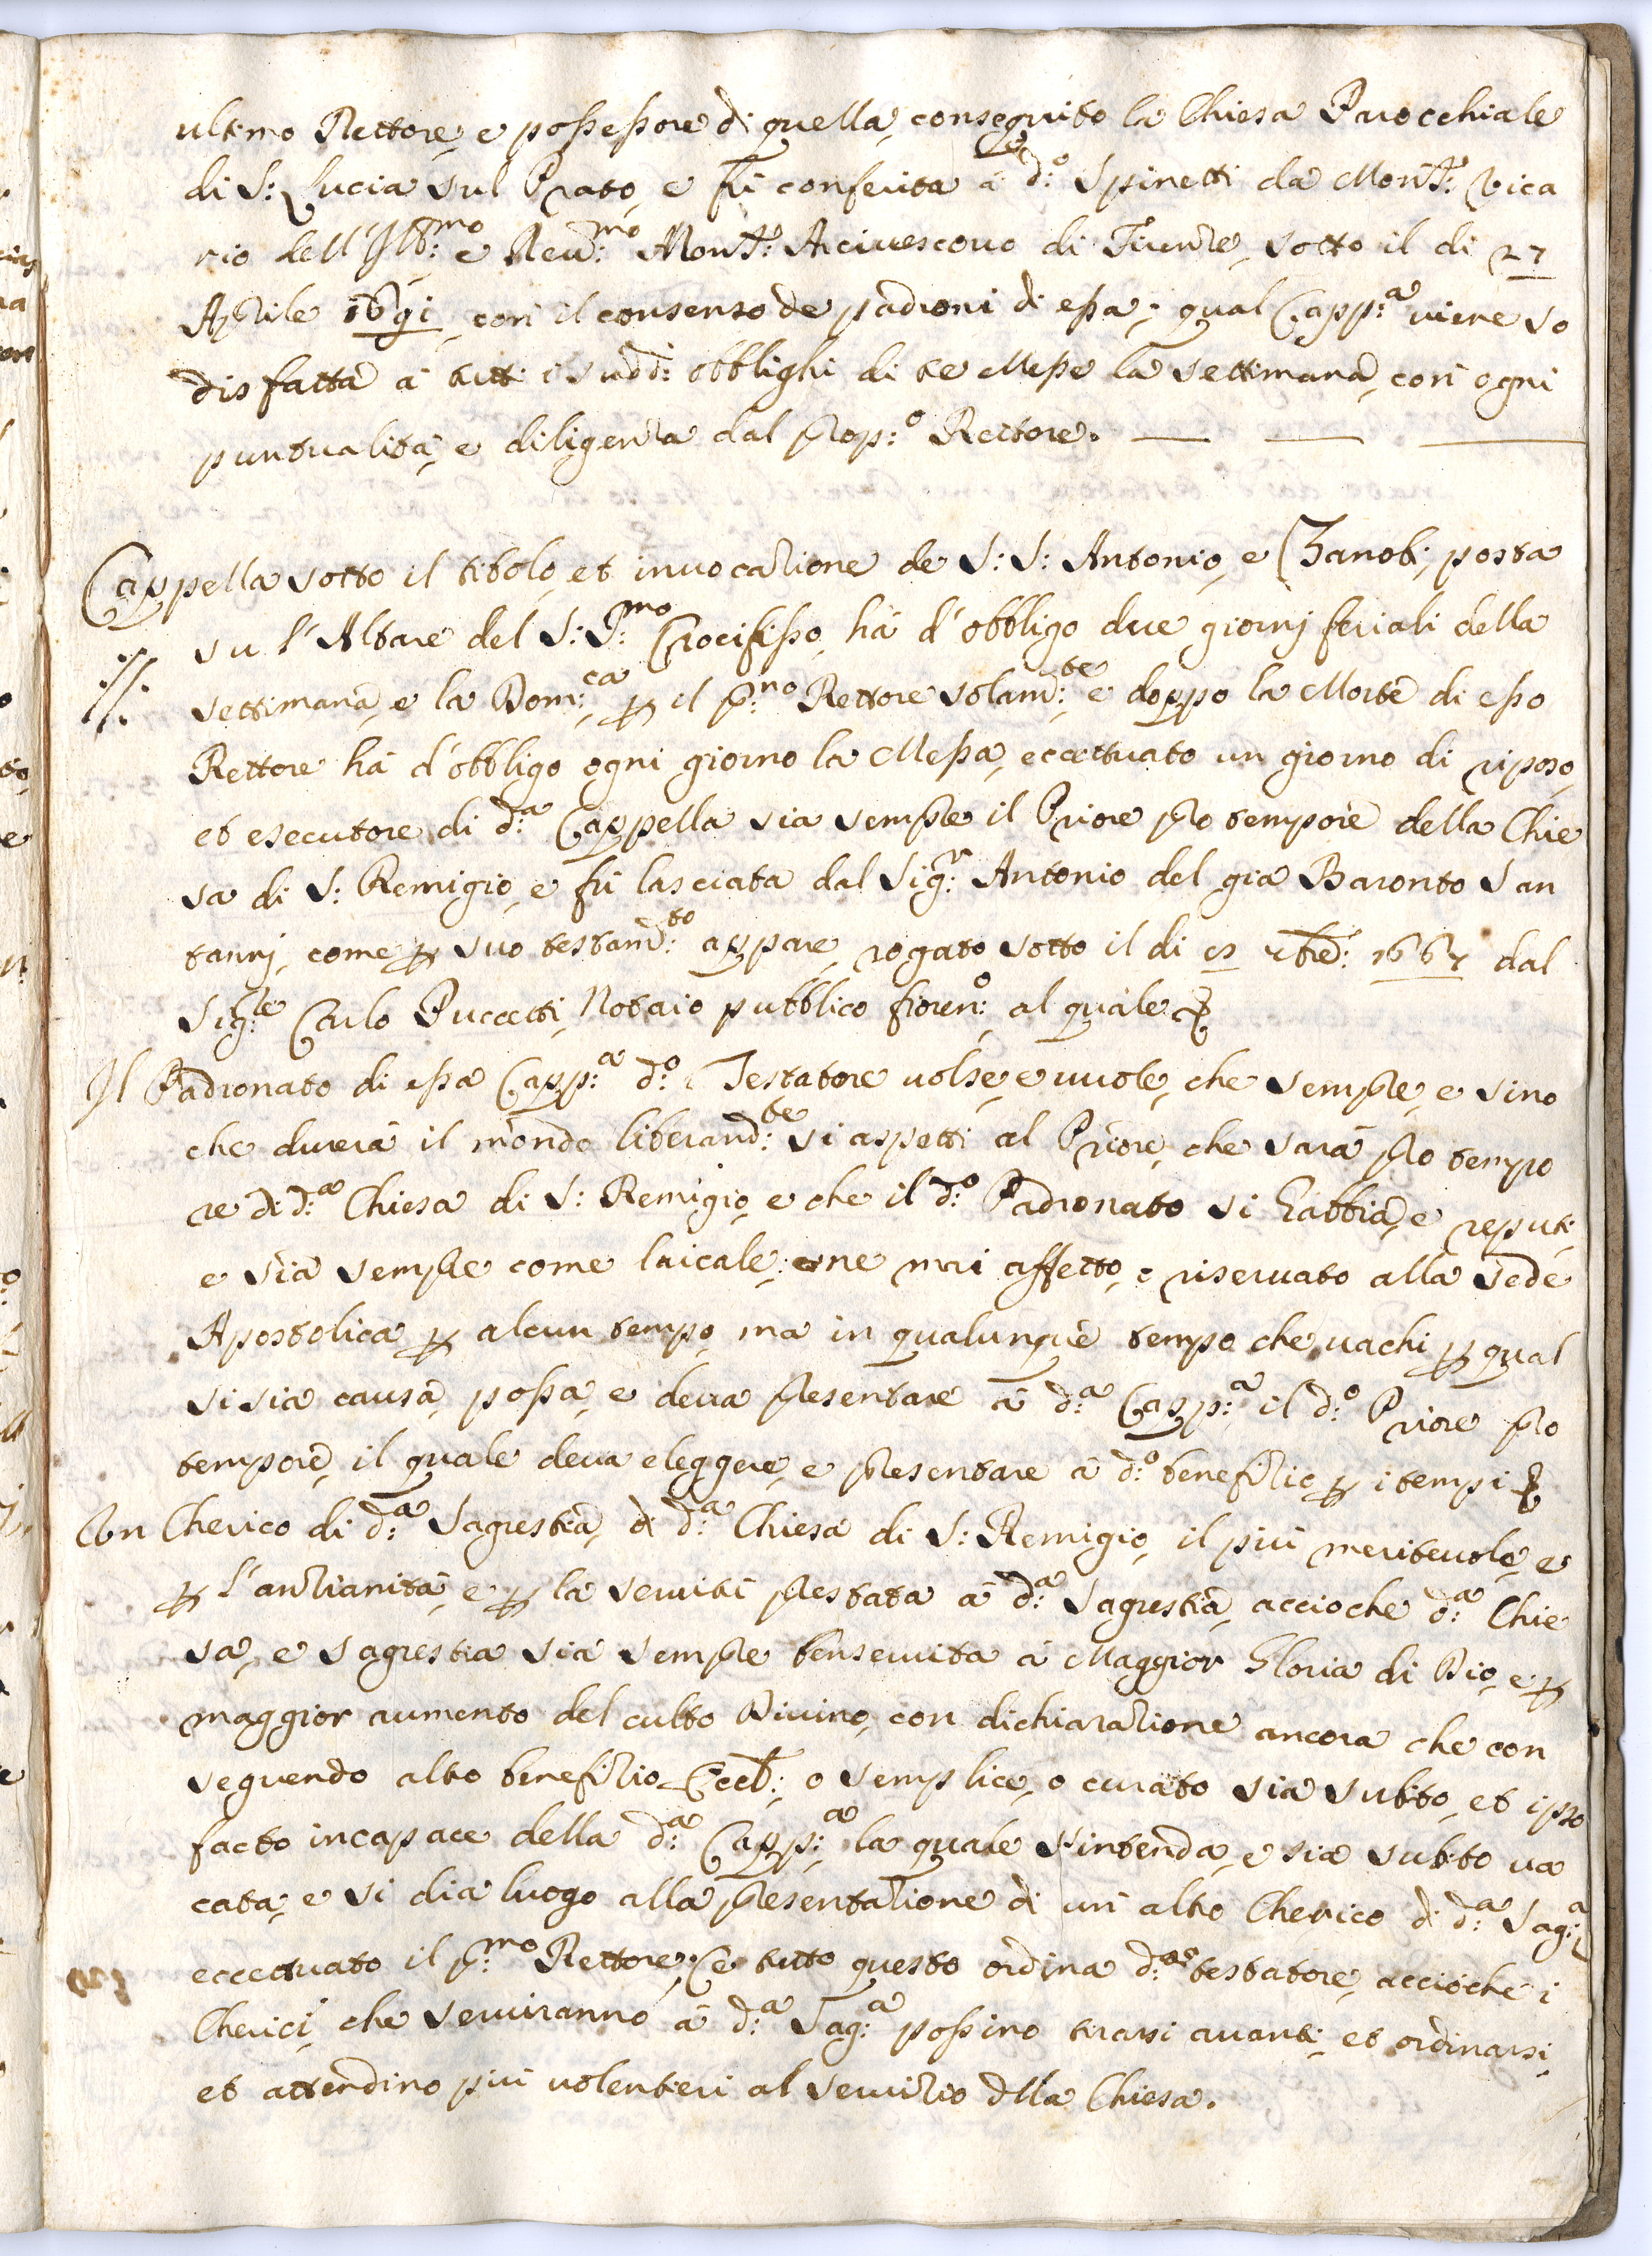 ultimo Rettore, e possessore di quella, conseguito la Chiesa Parocchiale
di S: Lucia sul Prato, e fù conferita à d:o Spinetti da Mons:r Vica
rio dell'Ill:mo e Reu:mo Mons:r Arciuescouo di Firenze, sotto il di 27
Aprile 1691, con il consenso de padroni di essa; qual Capp:a uiene so
disfatta à tutti i sudd:i obblighi di tre Messe la settimana, con ogni
puntualità, e diligenza dal prop:o Rettore.
Cappella sotto il titolo, et inuocazione de S: S: Antonio, e Zanobi, posta
su l'Altare del S: S:mo Crocifisso, hà d'obbligo due giorni feriali della
settimana, e la Dom:ca p il p:mo Rettore solam:te e doppo la Morte di esso
Rettore hà d'obbligo ogni giorno la Messa, eccettuato un giorno di riposo,
et esecutore di d:a Cappella sia sempre il Priore pro tempore della Chie
sa di S: Remigio, e fù lasciata dal Sig:r Antonio del già Baronto San
tanni, come p suo testam:to appare, rogato sotto il di 7bre: 1667 dal
Sig:re Carlo Puccetti, Notaio pubblico fioren:o al quale &
Il Padronato di essa Capp:a d:o Testatore uolse, e uuole, che sempre, e sino
che durerà il mondo liberam:te si aspetti al Priore, che sarà pro tempo
re di d:a Chiesa di S: Remigio, e che il d:o Padronato si habbia, e reputi,
e sia sempre come laicale; ne mai affetto, e riseruato alla sede
Apostolica p alcun tempo, ma in qualunque tempo che uachi p qual
si sia causa, possa, e deua presentare à d:a Capp:a il d:o Priore pro
tempore, il quale deua eleggere, e presentare à d:o benefizio p i tempi &
Un Cherico di d:a Sagrestia, di d:a Chiesa di S: Remigio, il più meriteuole, e
p l'anzianità, e p la seruitù prestata à d:a Sagrestia, accioche d:a Chie
sa, e sagrestia sia sempre ben seruita à Maggior Gloria di Dio, e p
maggior aumento del culto Diuino, con dichiarazione ancora che con
seguendo altro benefizio Eccl:, o semplice, o curato sia subito, et ipso
facto incapace della d:a Capp:a la quale s'intenda, e sia subito ua
cata, e si dia luogo alla presentazione di un altro Cherico di d:a Sag:a
eccettuato il p:mo Rettore; e tutto questo ordina d:o testatore, accioche i
Cherici, che seruiranno à d:a Sag:a possino tirarsi auanti, et ordinarsi,
et attendino più uolentieri al seruizio della Chiesa.